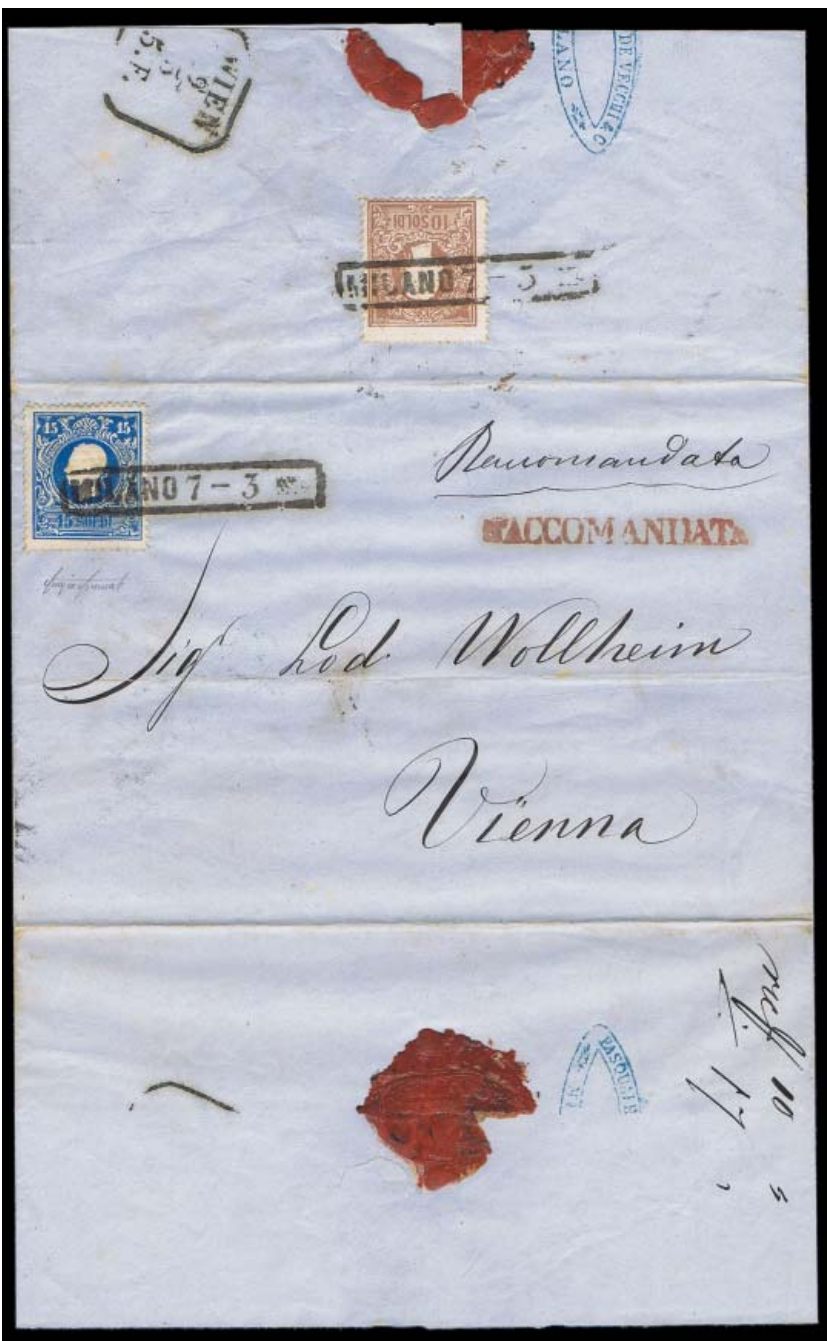 WIEN
9
5.F.
DE VECCHI & C
LANO
10 SOLDI
MILANO 7-3
15 15
MILANO 7-3
15 SOLDI
Raccomandata
RACCOMANDATA
Sigr Lod Wollheim
Vienna
PASQUALE